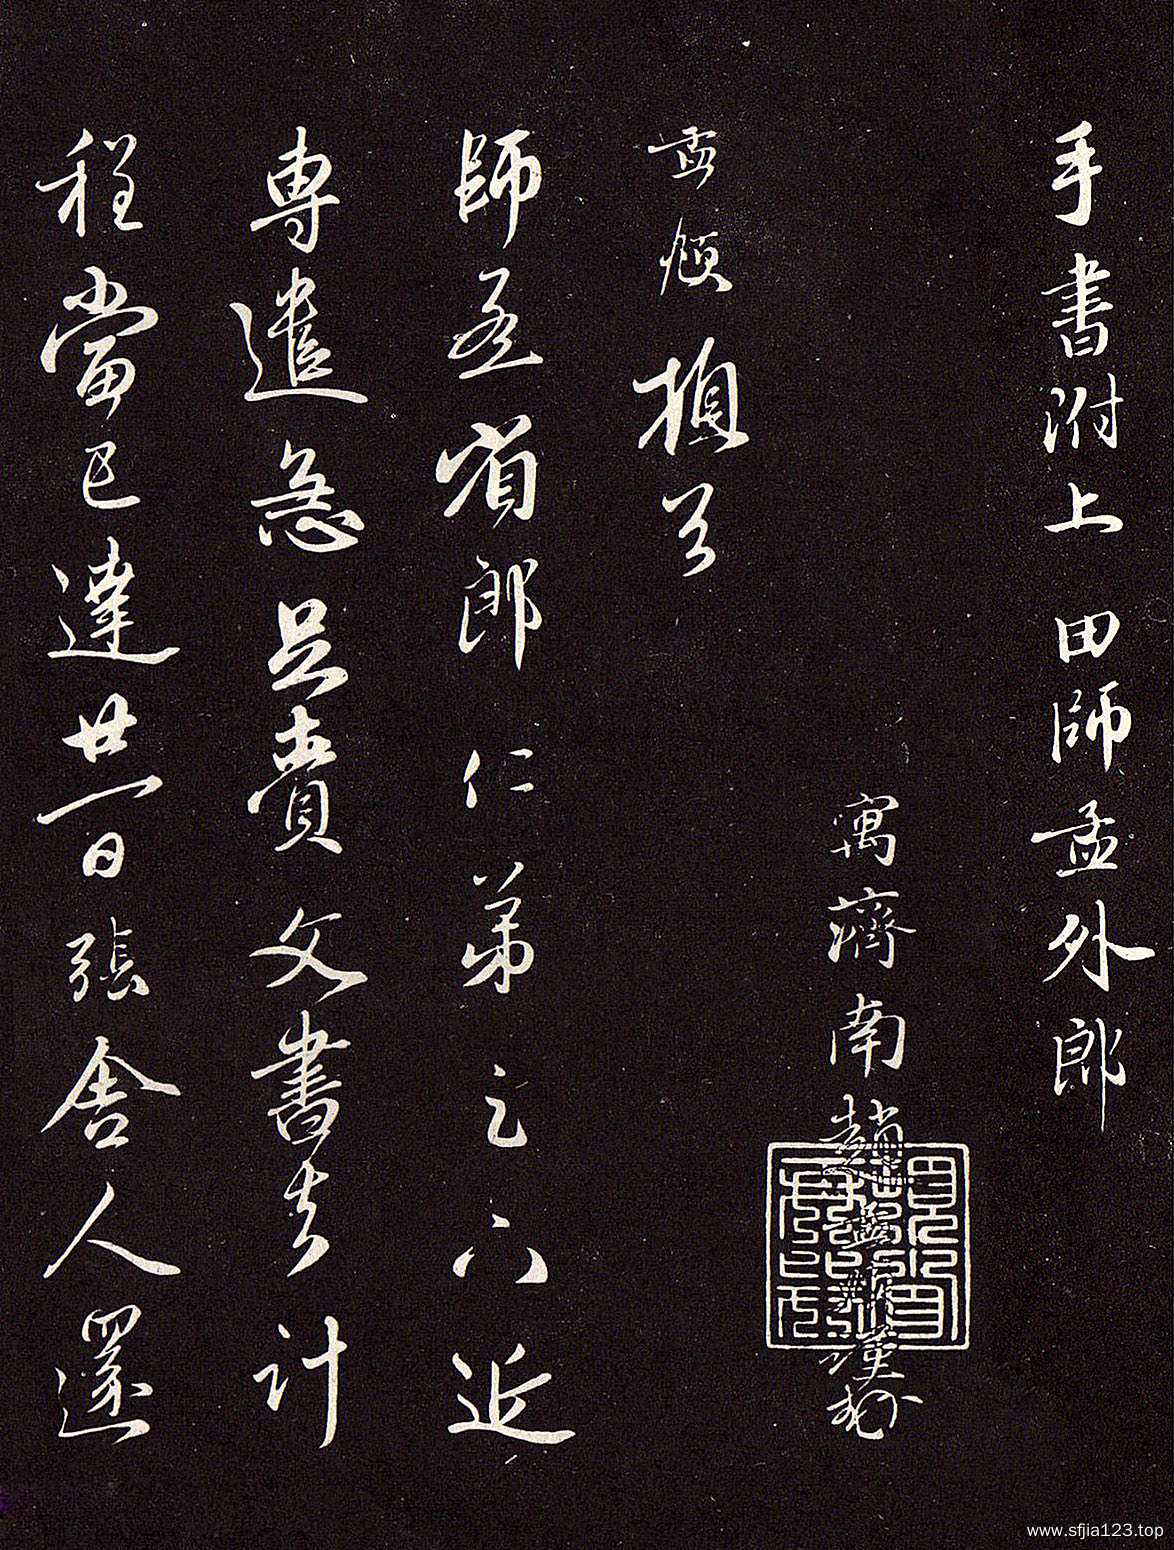 手書附上 田師孟外郎
寓濟南趙孟頫謹封
孟頫頓首
師孟省郎仁弟足下近
專遣急足賫文書去計
程當已達廿一日張舍人還
www.sfjia123.top